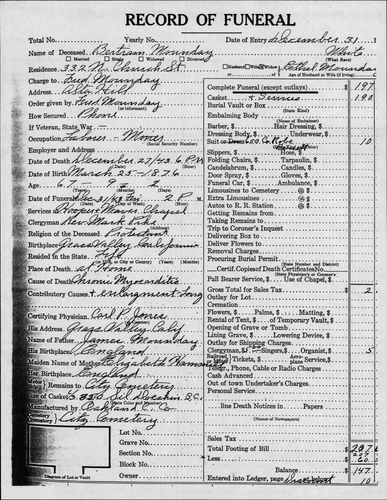 RECORD OF FUNERAL
Total No. Yearly No. Date of Entry December 31 1
Name of Deceased Bertram Mounday White
Married Single Widowed Divorced Husband Wife (What Race)
Residence 332 N. Church St. Age of Husband or Wife (if living)
Charge to Fred Mounday
Address
Order given by Fred Mounday
(or informant)
How Secured Phone
If Veteran, State War
Occupation Laborer - Mines
(Social Security Number)
Employer and Address
Date of Death December 27/43 6 P.M
Date of Birth March 25-1876
Age 67-9-2
Date of Funeral Dec 31/43 2 P.M
Services at Hooper Weaver Chapel
Clergyman Rev Mark
Religion of the Deceased Protestant
Birthplace Grass Valley California
Resided in the State Life
(U.S., City or County)
Place of Death at Home
Cause of Death Chronic Myocarditis
Contributory Causes & enlargement
Certifying Physician Carl P Jones
His Address Grass Valley Calif
Name of Father James Mounday
His Birthplace England
Maiden Name of Mother Elizabeth
Her Birthplace England
Remains to City Cemetery
Size of Casket
(State Color and Number)
Manufactured by Oakland C. Co.
Cemetery City Cemetery
Lot No.
Grave No.
Section No.
Block No.
Owner
Diagram of Lot or Vault
Complete Funeral (except outlays) $ 197
Casket & Service 190
Burial Vault or Box
(State Kind)
Embalming Body
(Name of Embalmer)
Barber, $ Hair Dressing, $
Dressing Body, $ Underwear, $
Suit or Robe 10
Slippers, $ Hose, $
Folding Chairs, $ Tarpaulin, $
Candelabrum, $ Candles, $
Door Spray, $ Gloves, $
Funeral Car, $ Ambulance, $
Limousines to Cemetery @ $
Extra Limousines @ $
Autos to R. R. Station @ $
Getting Remains from
Taking Remains to
Trip to Coroner's Inquest
Delivering Box to
Deliver Flowers to
Removal Charges
Procuring Burial Permit
(State Number and District)
Certif. Copies of Death Certificates No.
(State Physician's or Coroner's)
Pall Bearer Service, $ Use of Chapel, $
Gross Total for Sales Tax $ 2
Outlay for Lot
Cremation
Flowers, $ Palms, $ Matting, $
Rental of Tent, $ of Temporary Vault, $
Opening of Grave or Tomb
Lining Grave, $ Lowering Device, $
Outlay for Shipping Charges
Clergyman, $ Singers, $ Organist, $ 5
Railroad Tickets, $ Auto Service, $
Teleg., Phone, Cable or Radio Charges
Cash Advanced
Out of town Undertaker's Charges
Personal Service
line Death Notices in Papers
Sales Tax
Total Footing of Bill $ 207
Less 60
Balance 147
Entered into Ledger, page 10